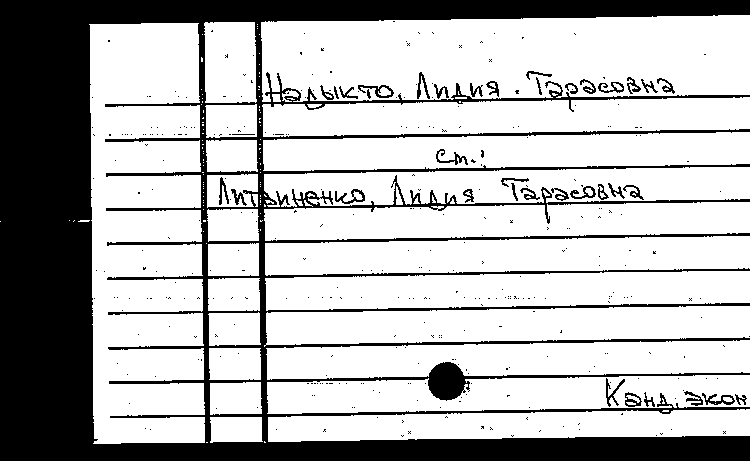 Надыкто, Лидия Тарасовна
см.:
Литвиненко, Лидия Тарасовна
Канд. экон